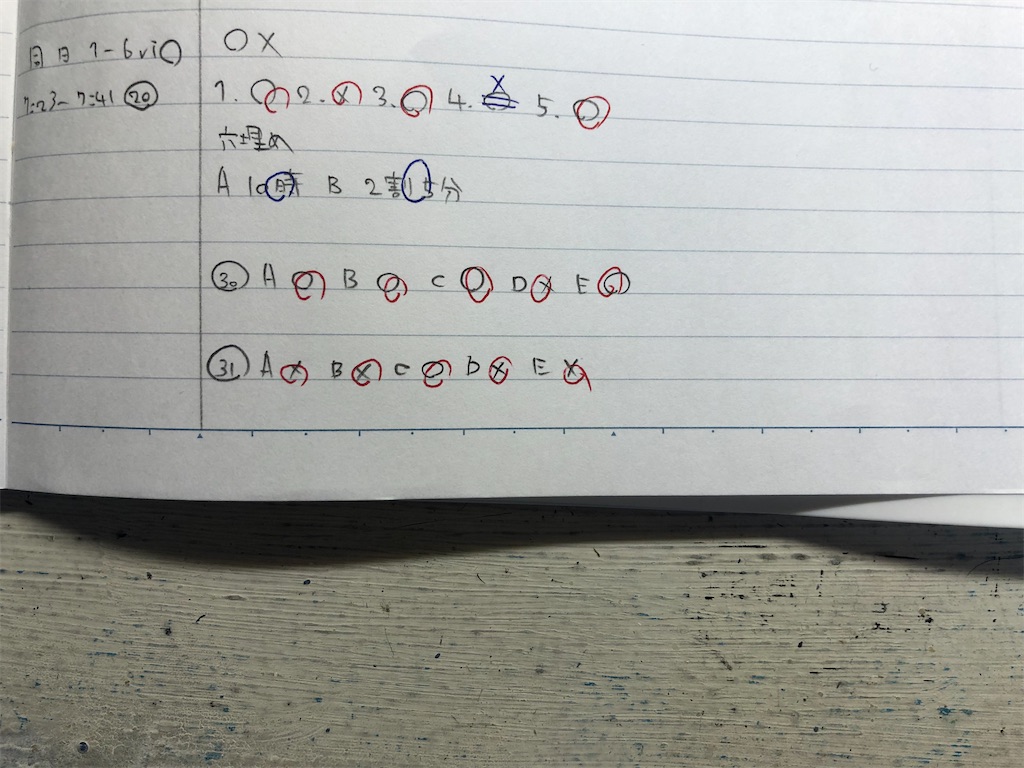 1-6 vi○
○×
7:23-7:41 ⑳
1. ○ 2. × 3. ○ 4. × 5. ○
穴埋め
A 10時 B 2割5分
㉚ A ○ B ○ C ○ D × E ○
㉛ A × B × C ○ D × E ×